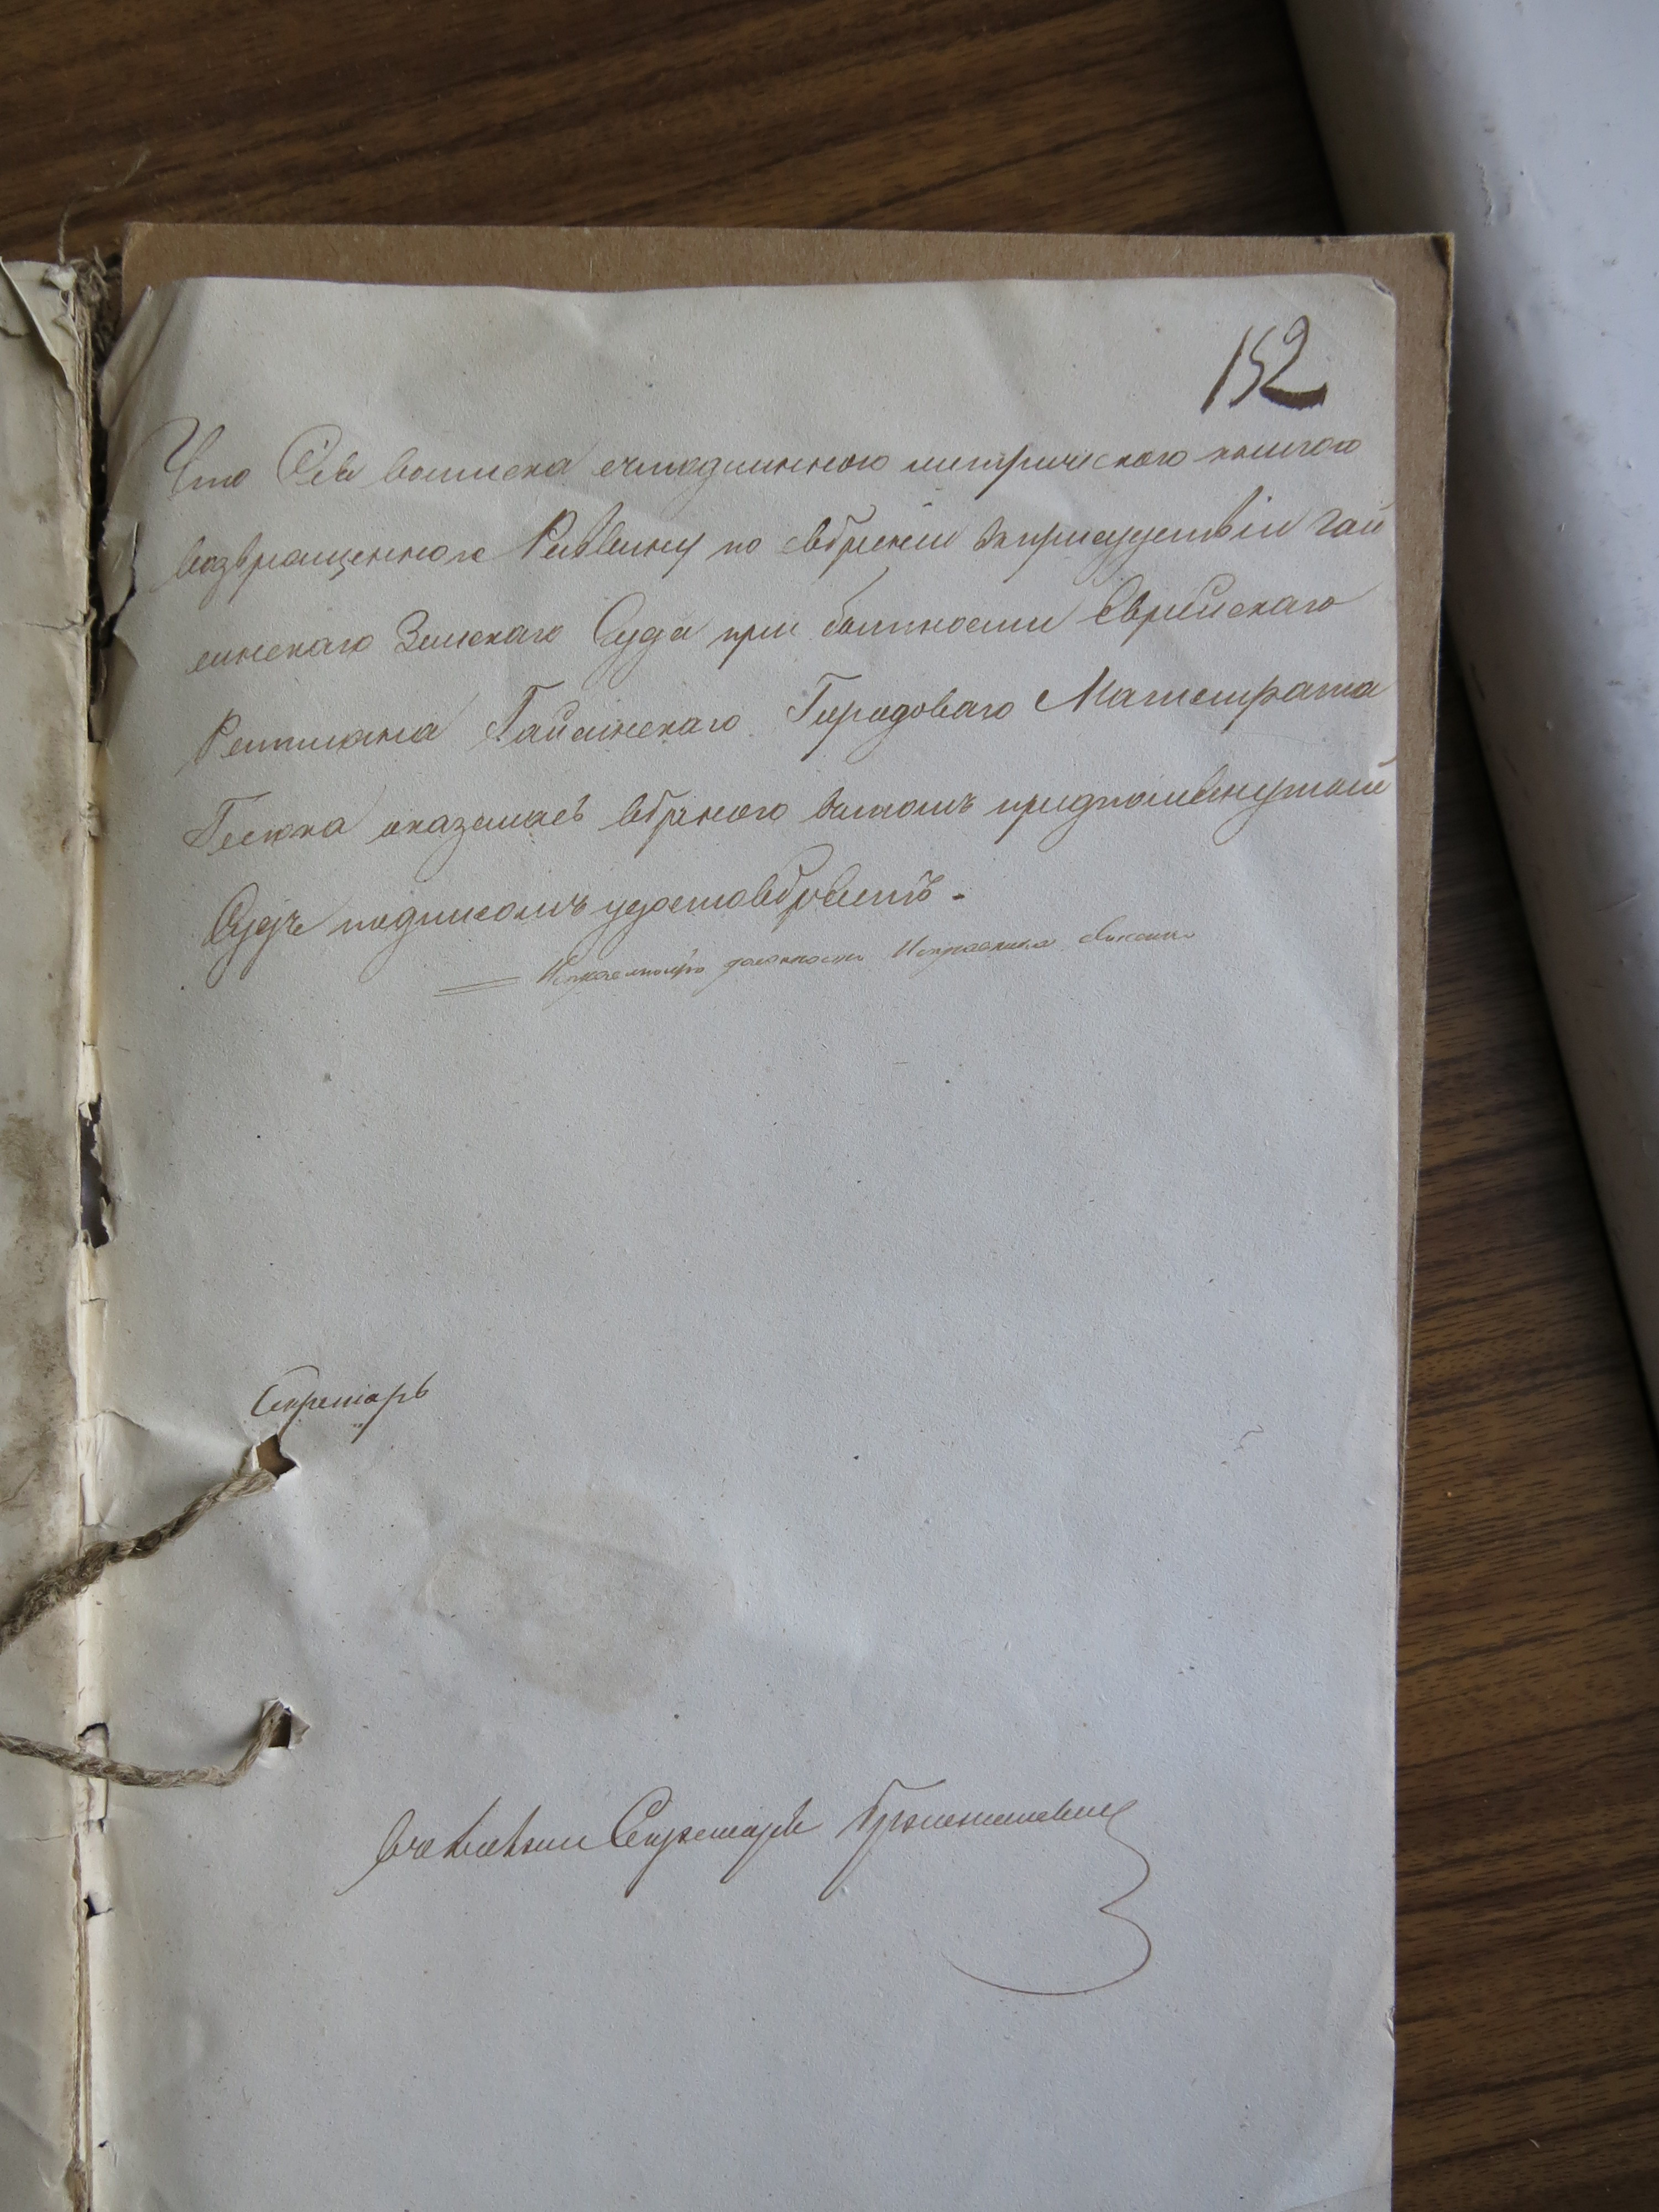 152
Что Сія выписка съ подлинною метрическою книгою
возвращенною Раввину по свѣркѣ въ присудствіи Гай
синскаго Земскаго Суда при бытности Еврейскаго
Ратмана Гайсинскаго Городоваго Магистрата
оказалась вѣрною вътомъ предпомянутый
Судъ подписомъ удостовѣряетъ.
должности Исправника
Секретарь
Секретарь